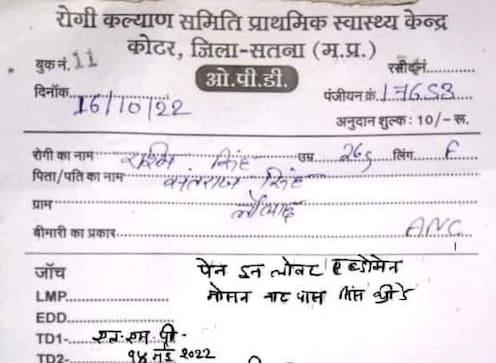 रोगी कल्याण समिति प्राथमिक स्वास्थ्य केन्द्र
कोटर, जिला-सतना (म.प्र.)
बुक नं. 11 रसीद नं.
ओ.पी.डी.
दिनाँक 16/10/22 पंजीयन क्रं. 17653
अनुदान शुल्क: 10/- रू.
रोगी का नाम रश्मि सिंह उम्र 26 लिंग F
पिता/पति का नाम सिंह
ग्राम
बीमारी का प्रकार ANC
जाँच पेन इन लोवर एब्डोमेन
LMP. मोसन नाट पास
EDD.
TD1- एल.एम.पी-
TD2- १४ मई २०२२